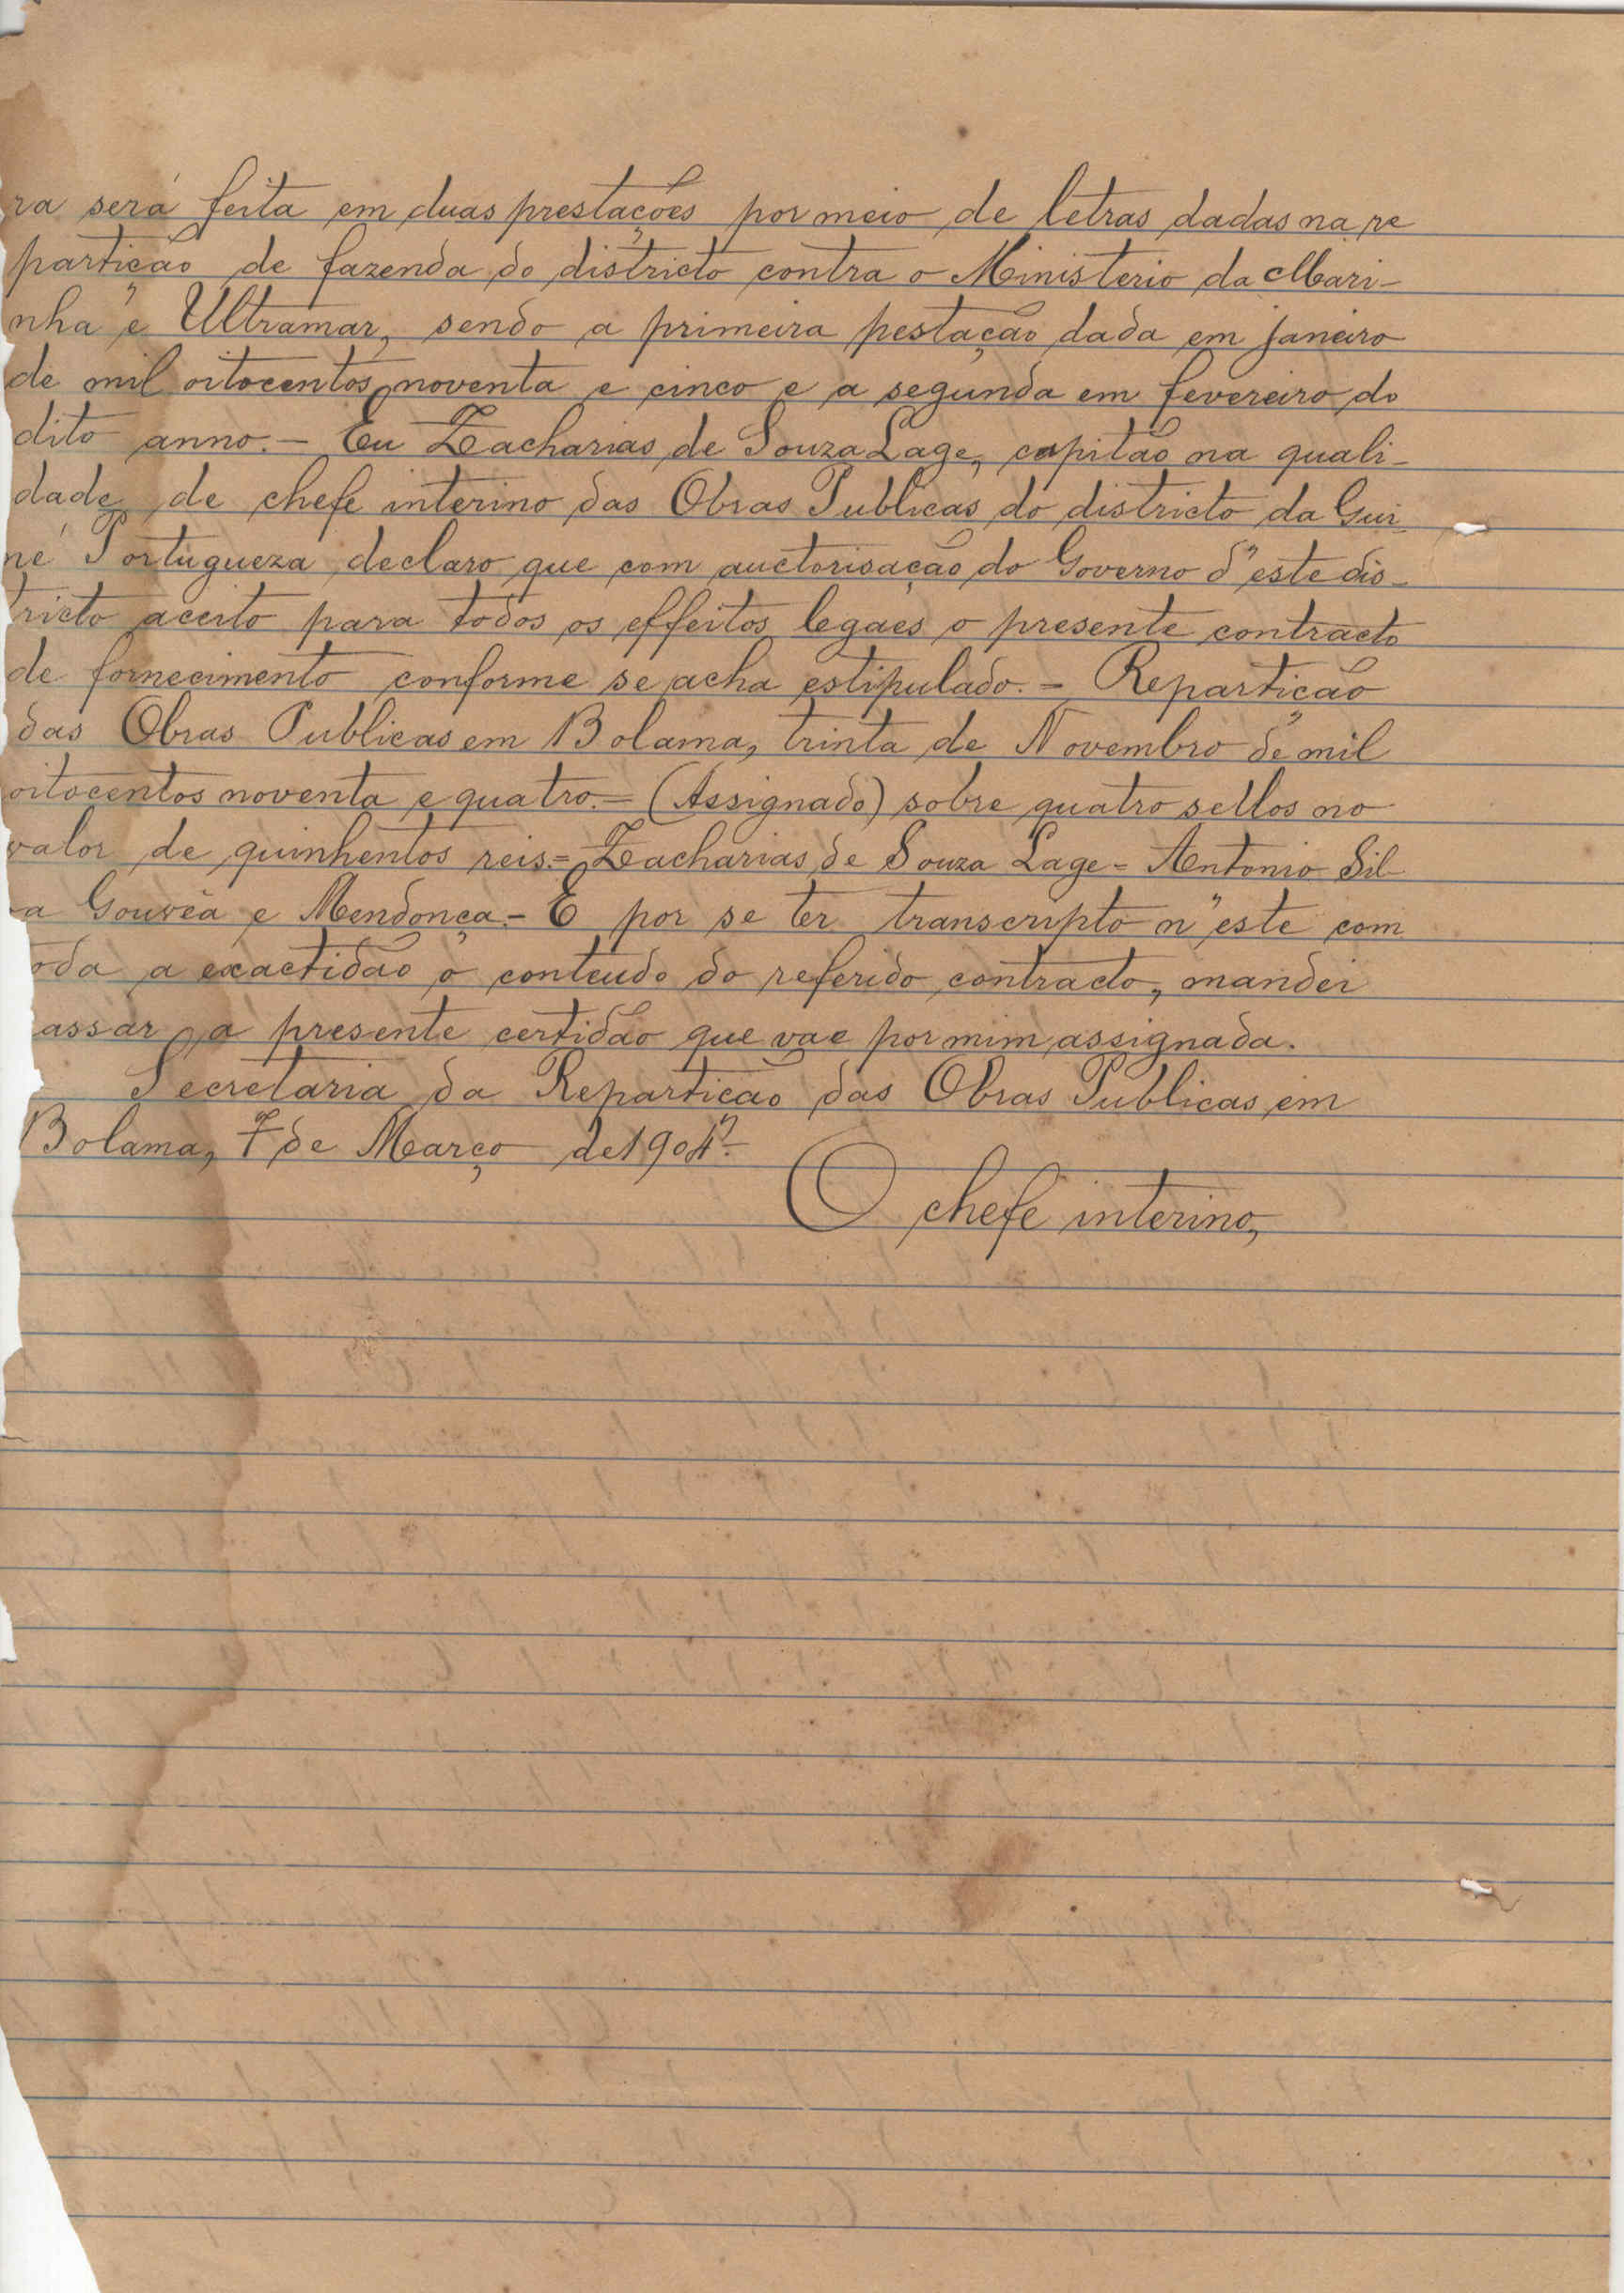 ra será feita em duas prestações por meio de letras dadas na re
partição de fazenda do districto contra o Ministerio da Mari-
nha e Ultramar, sendo a primeira pestação dada em janeiro
de mil oitocentos noventa e cinco e a segunda em fevereiro do
dito anno.- Eu Zacharias de Souza Lage, capitão na quali-
dade de chefe interino das Obras Publicas do districto da Gui-
né Portugueza declaro que com auctorisação do Governo d"este dis-
tricto aceito para todos os effeitos legaes o presente contracto
de fornecimento conforme se acha estipulado.- Repartição
das Obras Publicas em Bolama, trinta de Novembro de mil
oitocentos noventa e quatro.- (Assignado) sobre quatro sellos no
valor de quinhentos reis.= Zacharias de Souza Lage = Antonio Sil-
a Gouvêa e Mendonça.- E por se ter transcripto n"este com
oda a exactidão o conteudo do referido contracto, mandei
assar a presente certidão que vae por mim assignada.
Secretaria da Repartição das Obras Publicas em
Bolama, 7 de Março de 1904.-
O chefe interino,